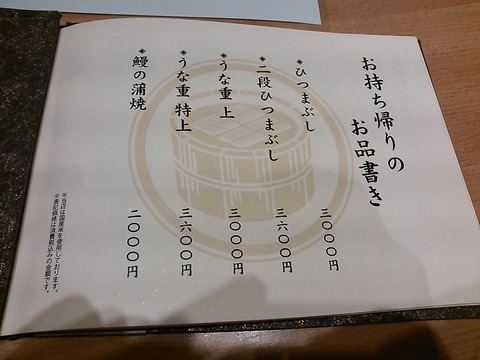 お持ち帰りの
お品書き
◈ ひつまぶし 三〇〇〇円
◈ 二段ひつまぶし 三六〇〇円
◈ うな重 上 三〇〇〇円
◈ うな重 特上 三六〇〇円
◈ 鰻の蒲焼 二〇〇〇円
※当店は国産米を使用しております。
※表記価格は消費税込みの金額です。